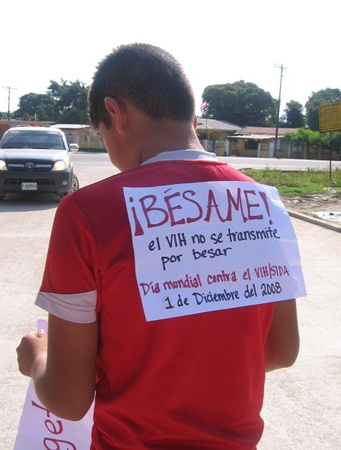 ¡BÉSAME!
el VIH no se transmite
por besar
Día mundial contra el VIH/SIDA
1 de Diciembre del 2008